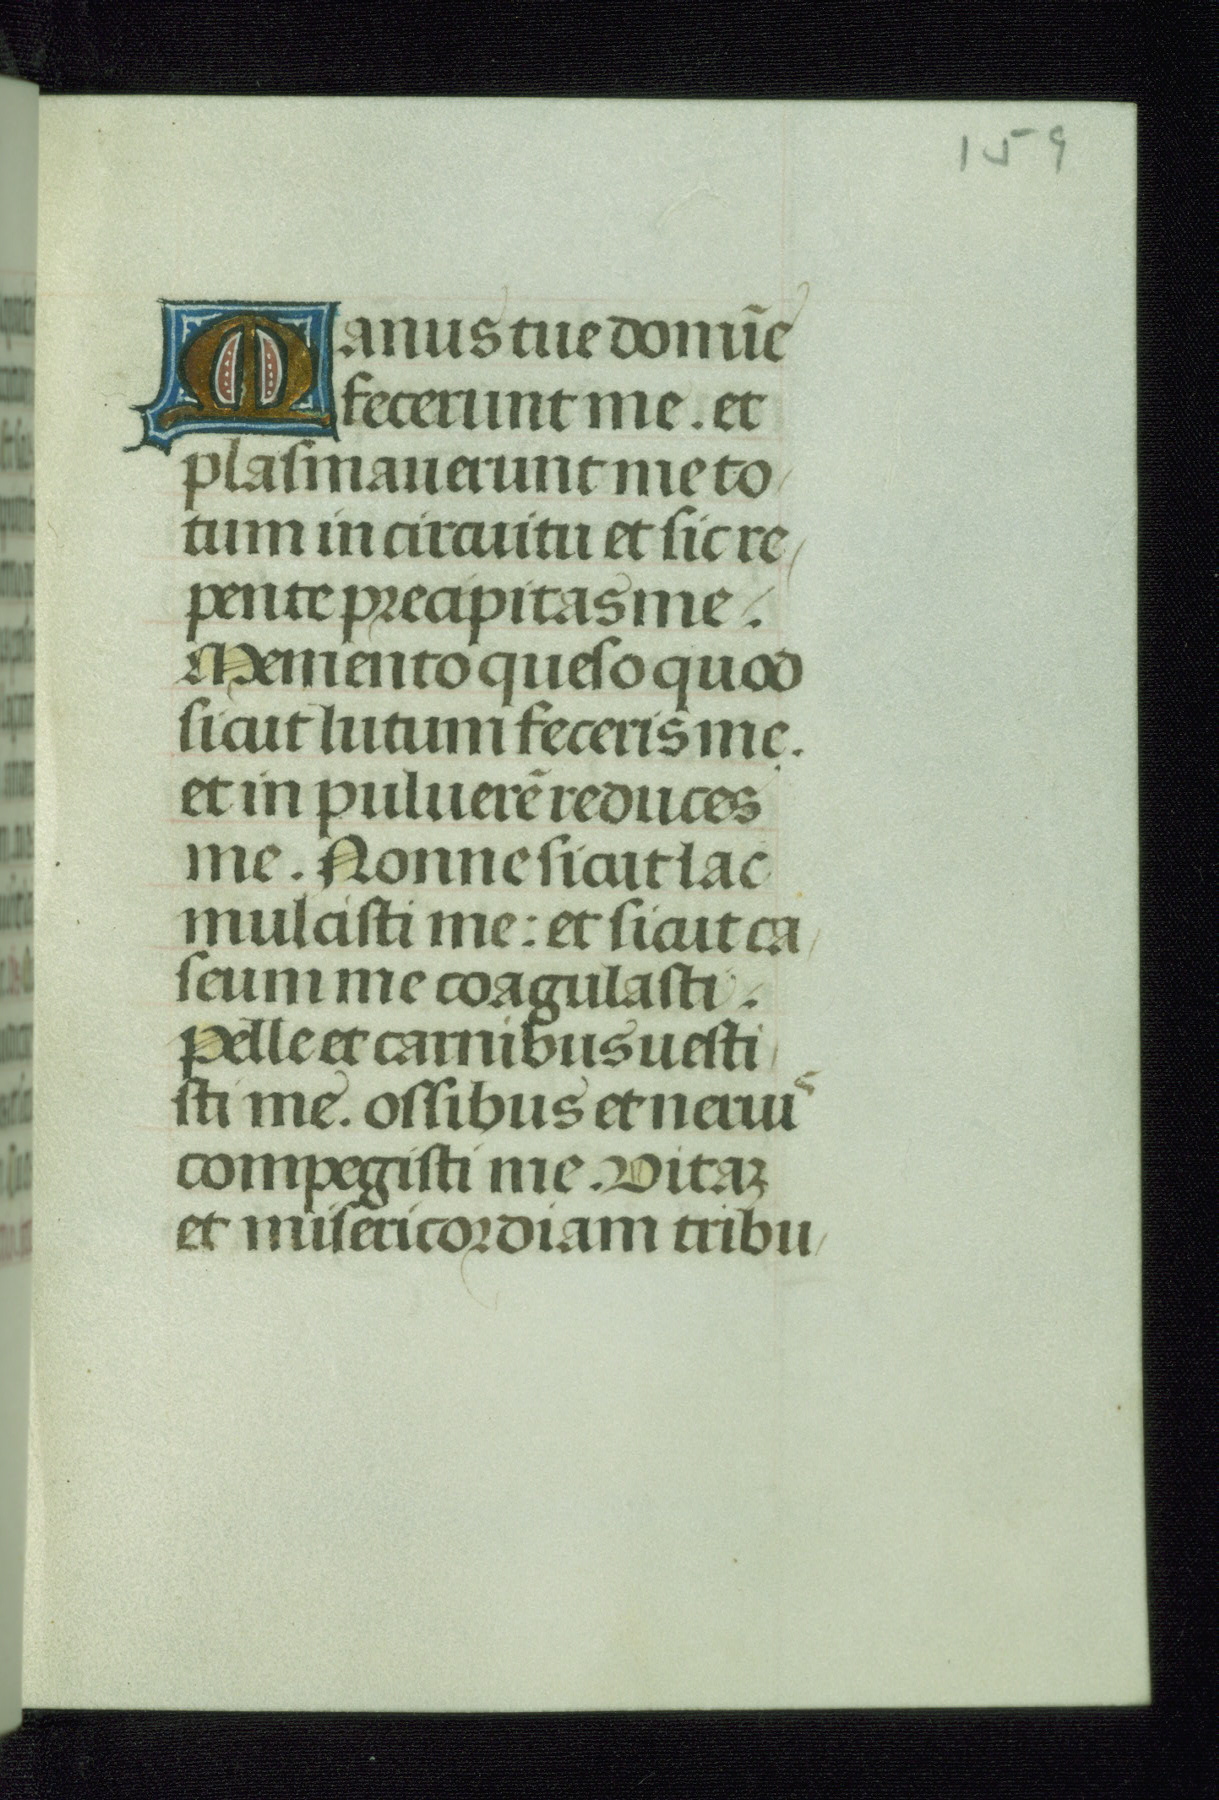 159
Manus tue domĩe
fecerunt me. et
plasmauerunt me to
tum in circuitu et sic re
pente precipitas me.
Memento queso quod
sicut lutum feceris me.
et in puluerẽ reduces
me. Nonne sicut lac
mulcisti me: et sicut ca
seum me coagulasti.
Pelle et carnibus uesti
sti me. ossibus et neruis
compegisti me. Vitaꝫ
et misericordiam tribu